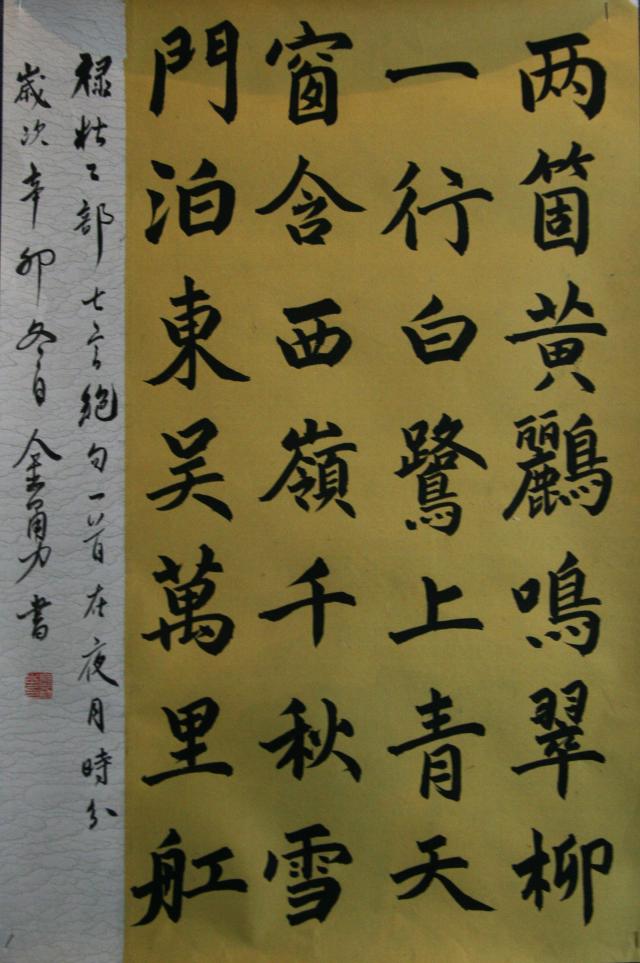 两箇黄鸝鳴翠柳
一行白鷺上青天
窗含西嶺千秋雪
門泊東吴萬里舡
禄杜工部七言絶句一首在夜月時分
歲次辛卯冬日金勇書